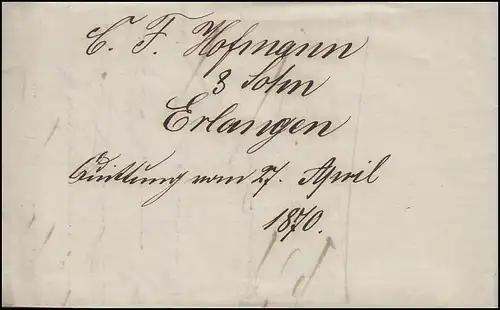 C. F. Hofmann
& Sohn
Erlangen
Quittung vom 27. April
1870.